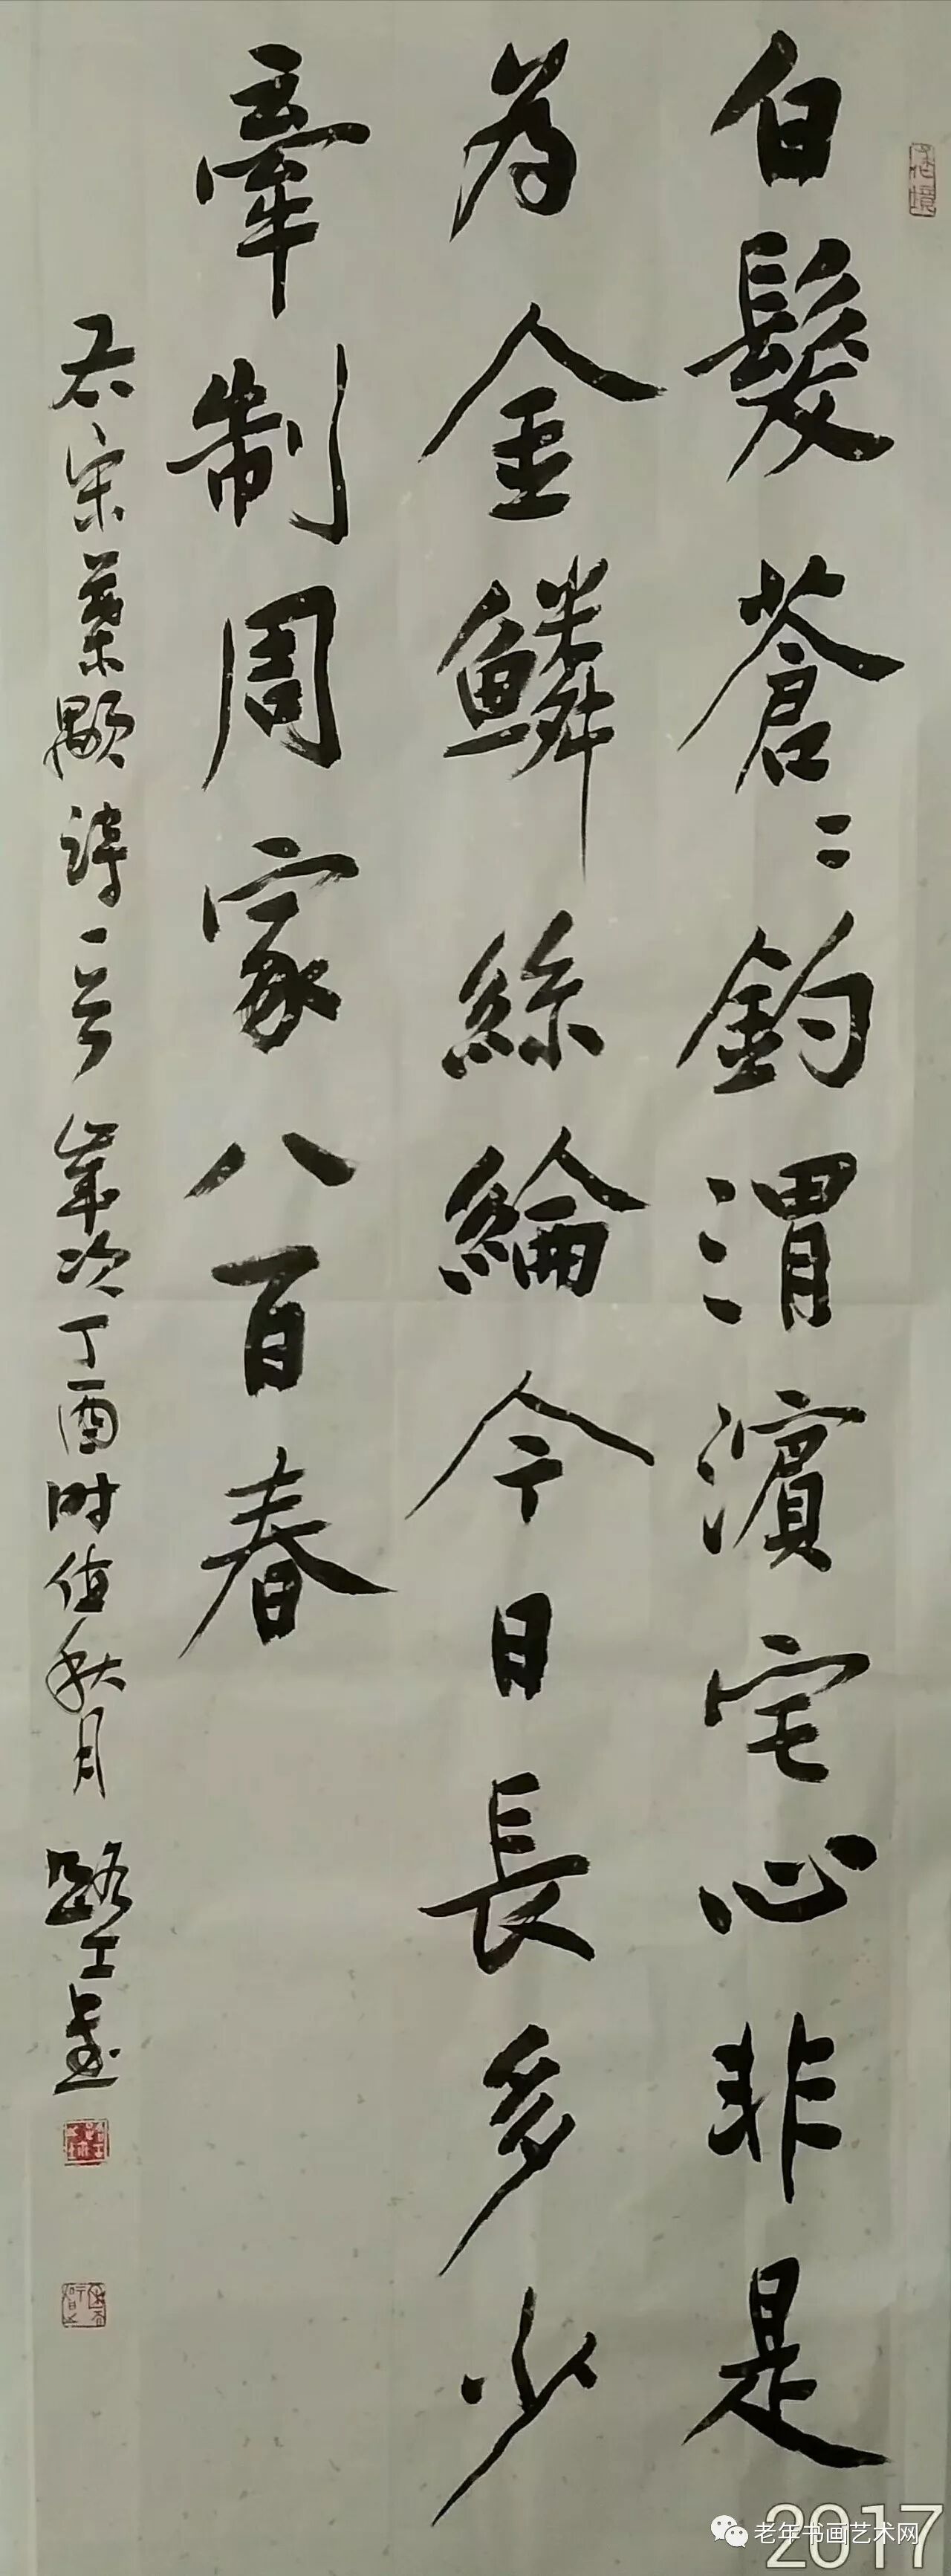 白髮蒼〻釣渭濱宅心非是
為金鱗絲綸今日長多少
牽制周家八百春
右宋葉顒詩一首 歲次丁酉時值秋月 路工書
老年书画艺术网
2017